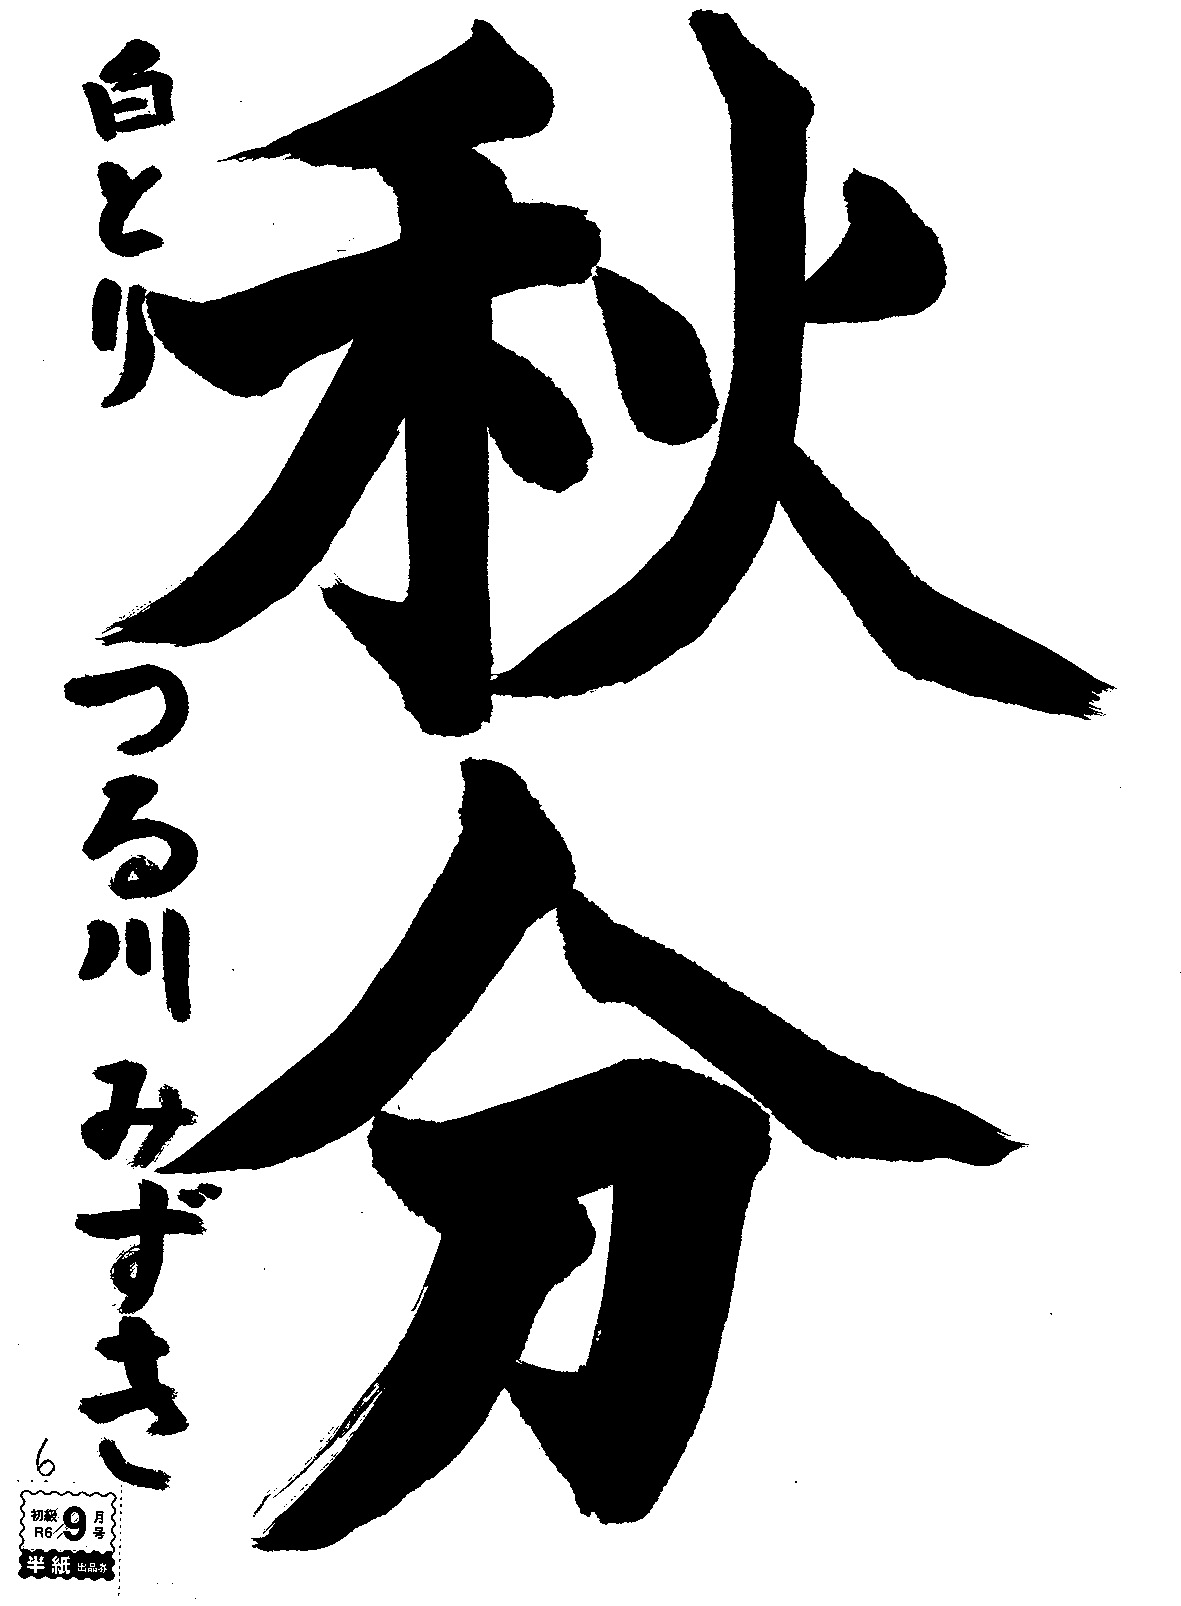 秋分
白とり
つる川 みずき
6
初級
R6/9月号
半紙 出品券